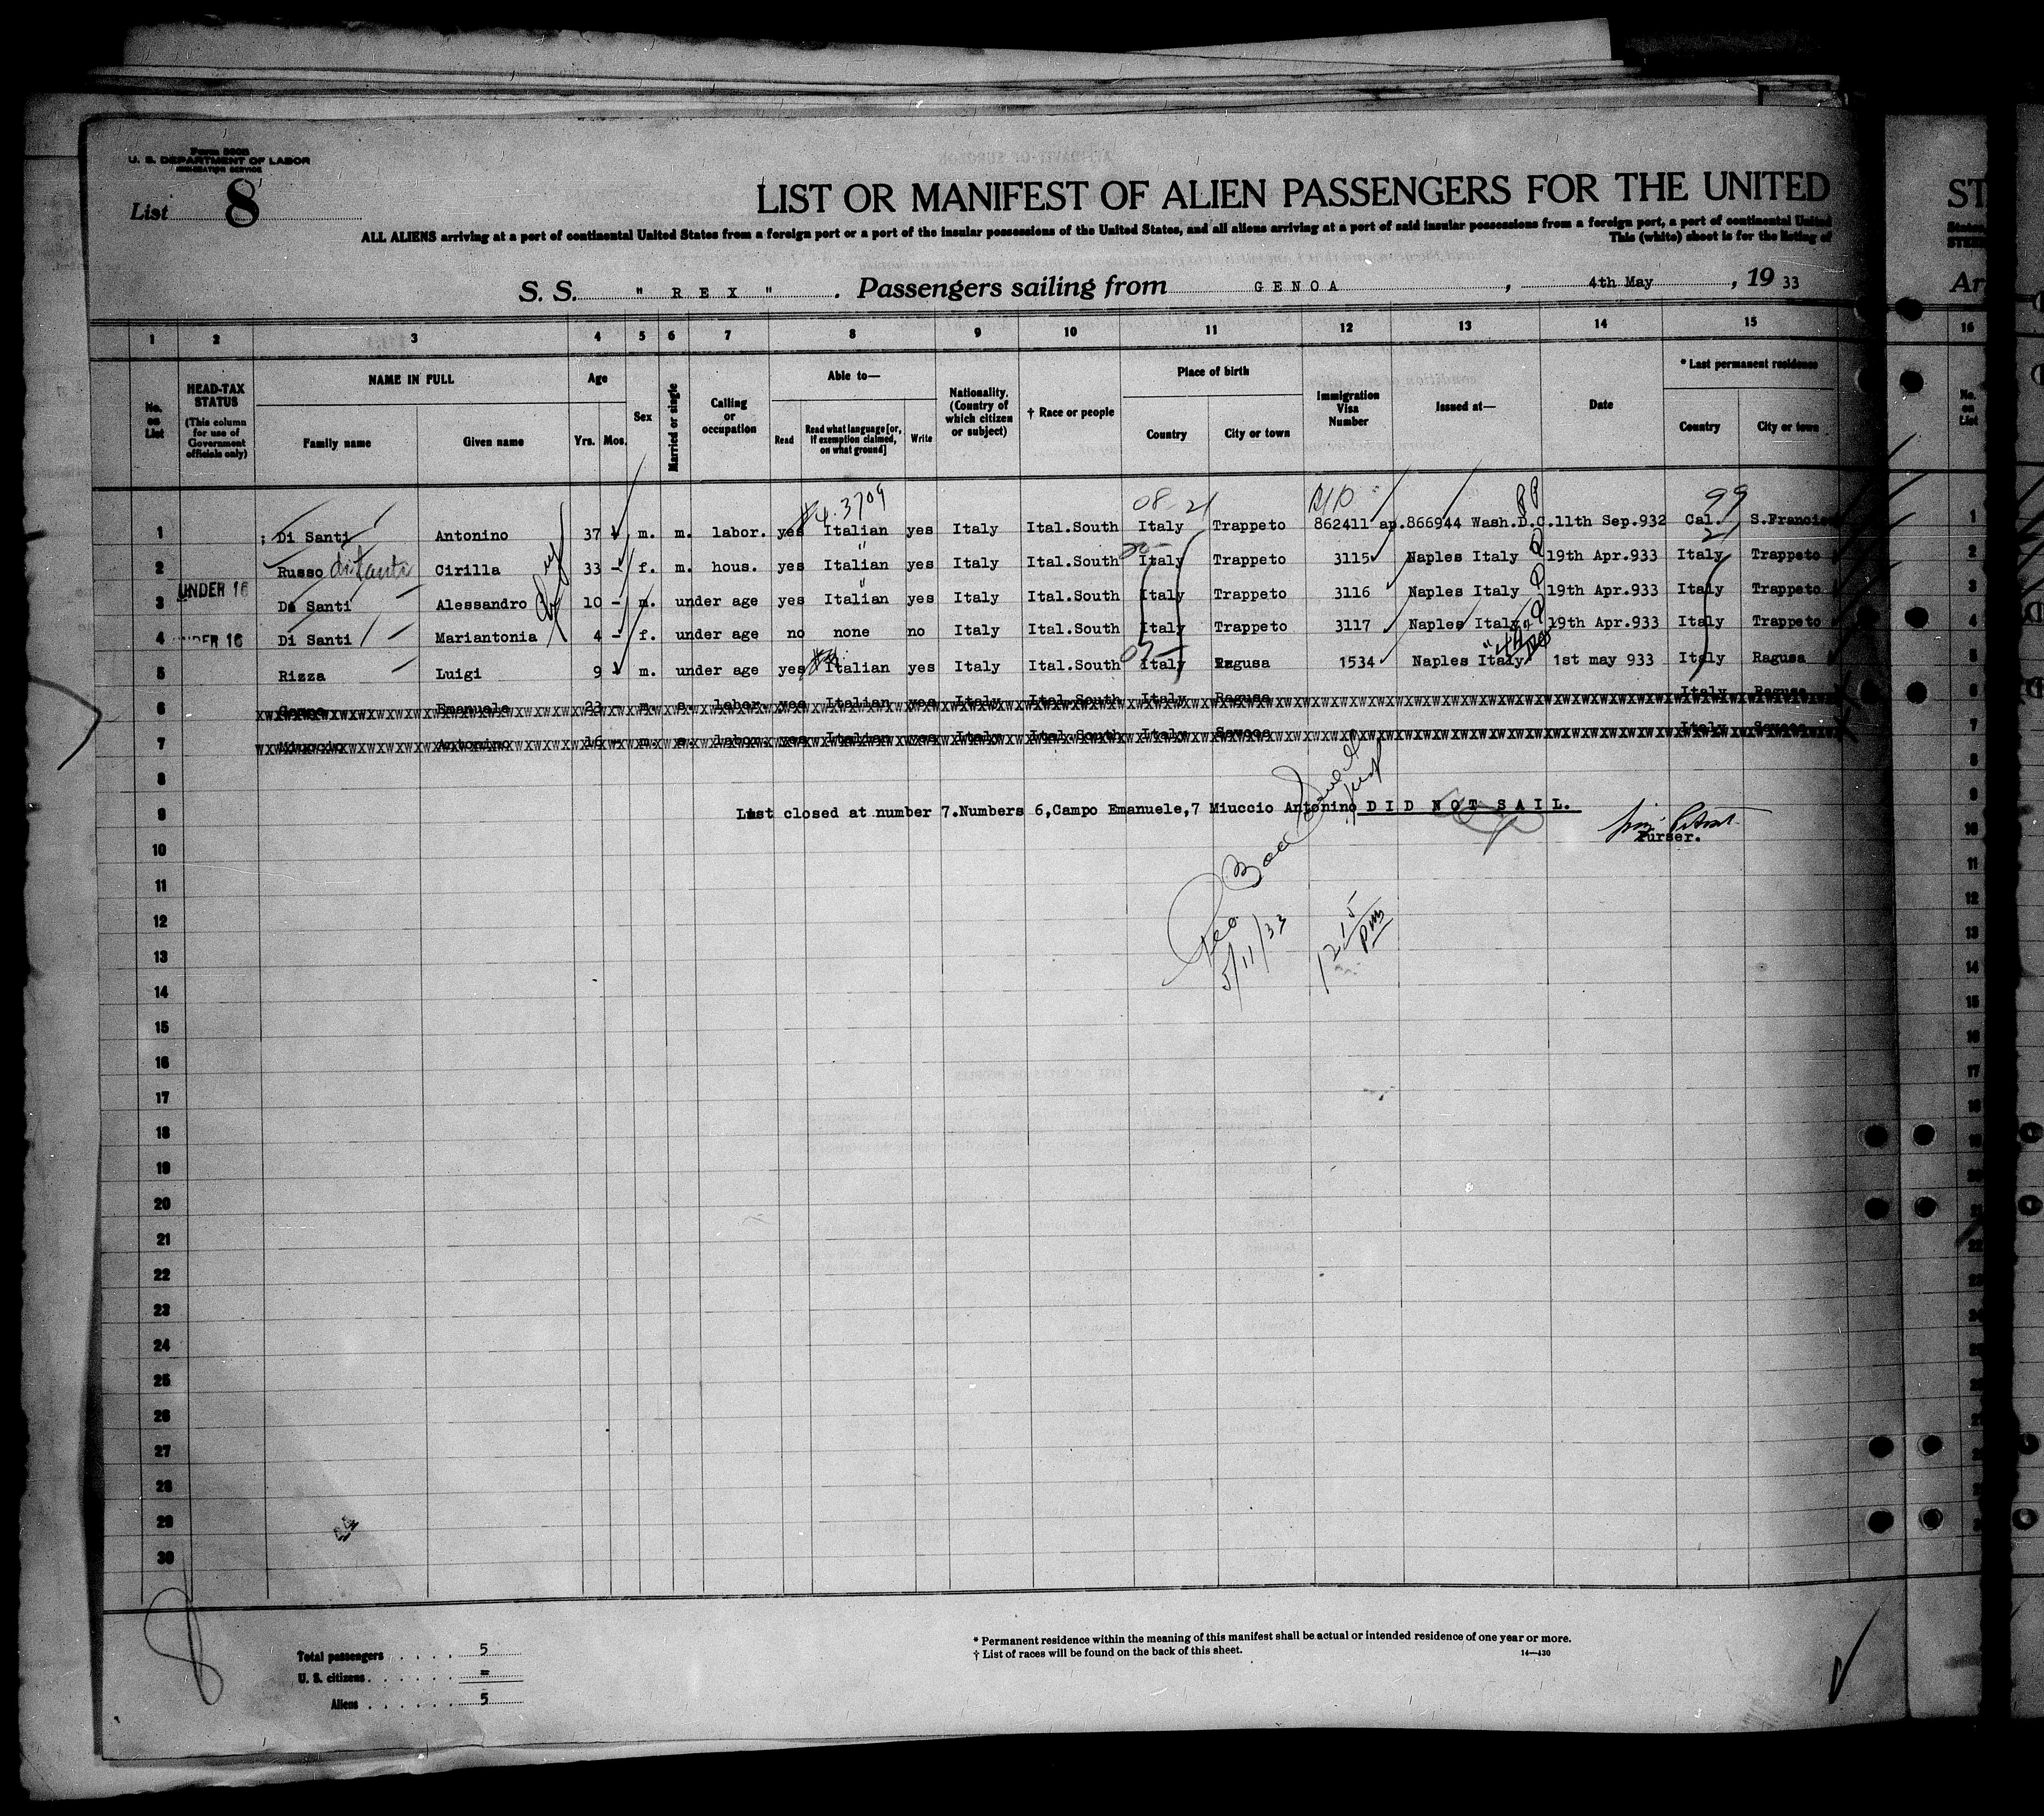 Form 500B
U. S. DEPARTMENT OF LABOR
IMMIGRATION SERVICE
List 8
LIST OR MANIFEST OF ALIEN PASSENGERS FOR THE UNITED
ST
ALL ALIENS arriving at a port of continental United States from a foreign port or a port of the insular possessions of the United States, and all aliens arriving at a port of said insular possessions from a foreign port, a port of continental United
This (white) sheet is for the listing of
S. S. " R E X " . Passengers sailing from G E N O A , 4th May , 19 33
Ar
1 2 3 4 5 6 7 8 9 10 11 12 13 14 15 16
No. on List
HEAD-TAX STATUS (This column for use of Government officials only)
NAME IN FULL
Family name Given name
Age
Yrs. Mos.
Sex
Married or single
Calling or occupation
Able to—
Read Read what language [or, if exemption claimed, on what ground] Write
Nationality. (Country of which citizen or subject)
† Race or people
Place of birth
Country City or town
Immigration Visa Number
Issued at—
Date
* Last permanent residence
Country City or town
No. on List
#4.3709 08 21 99
1 Di Santi Antonino 37 m. m. labor. yes Italian yes Italy Ital.South Italy Trappeto 862411 ap.866944 Wash.D.C. 11th Sep.932 Cal. S.Francis 1
2 Russo Cirilla 33 - f. m. hous. yes Italian yes Italy Ital.South Italy Trappeto 3115 Naples Italy 19th Apr.933 Italy Trappeto 2
3 UNDER 16 Di Santi Alessandro 10 - m. under age yes Italian yes Italy Ital.South Italy Trappeto 3116 Naples Italy 19th Apr.933 Italy Trappeto 3
4 UNDER 16 Di Santi Mariantonia 4 - f. under age no none no Italy Ital.South Italy Trappeto 3117 Naples Italy 19th Apr.933 Italy Trappeto 4
5 Rizza Luigi 9 m. under age yes Italian yes Italy Ital.South Italy Ragusa 1534 Naples Italy 1st may 933 Italy Ragusa 5
6 Campo Emanuele 23 - m. s. labor. yes Italian yes Italy Ital.South Italy Ragusa Italy Ragusa 6
7 Miuccio Antonino 16 - m. s. labor. yes Italian yes Italy Ital.South Italy Savoca Italy Savoca 7
8 8
9 List closed at number 7.Numbers 6,Campo Emanuele,7 Miuccio Antonino D I D N O T S A I L. 9
Purser.
10
11
12
13
14
15
16
17
18
19
20
21
22
23
24
25
26
27
28
29
30
5/11/33
12 15 pm
24
8
Total passengers . . . . . 5
U. S. citizens . . . . . . =
Aliens . . . . . . 5
* Permanent residence within the meaning of this manifest shall be actual or intended residence of one year or more.
† List of races will be found on the back of this sheet.
14—430